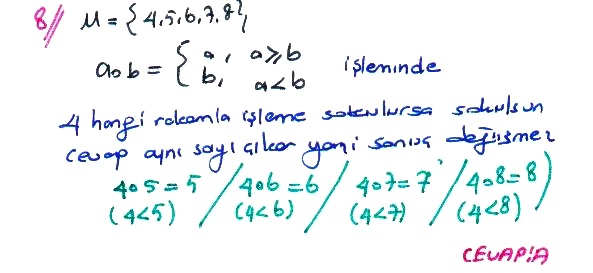 8// M = {4,5,6,7,8},
a∘b = { a, a≥b
b, a<b işleminde
4 hangi rakamla işleme sokulursa sokulsun
cevap aynı sayı çıkar yani sonuç değişmez
4∘5 = 5 / 4∘6 = 6 / 4∘7 = 7 / 4∘8 = 8
(4<5) / (4<6) / (4<7) / (4<8)
CEVAP:A